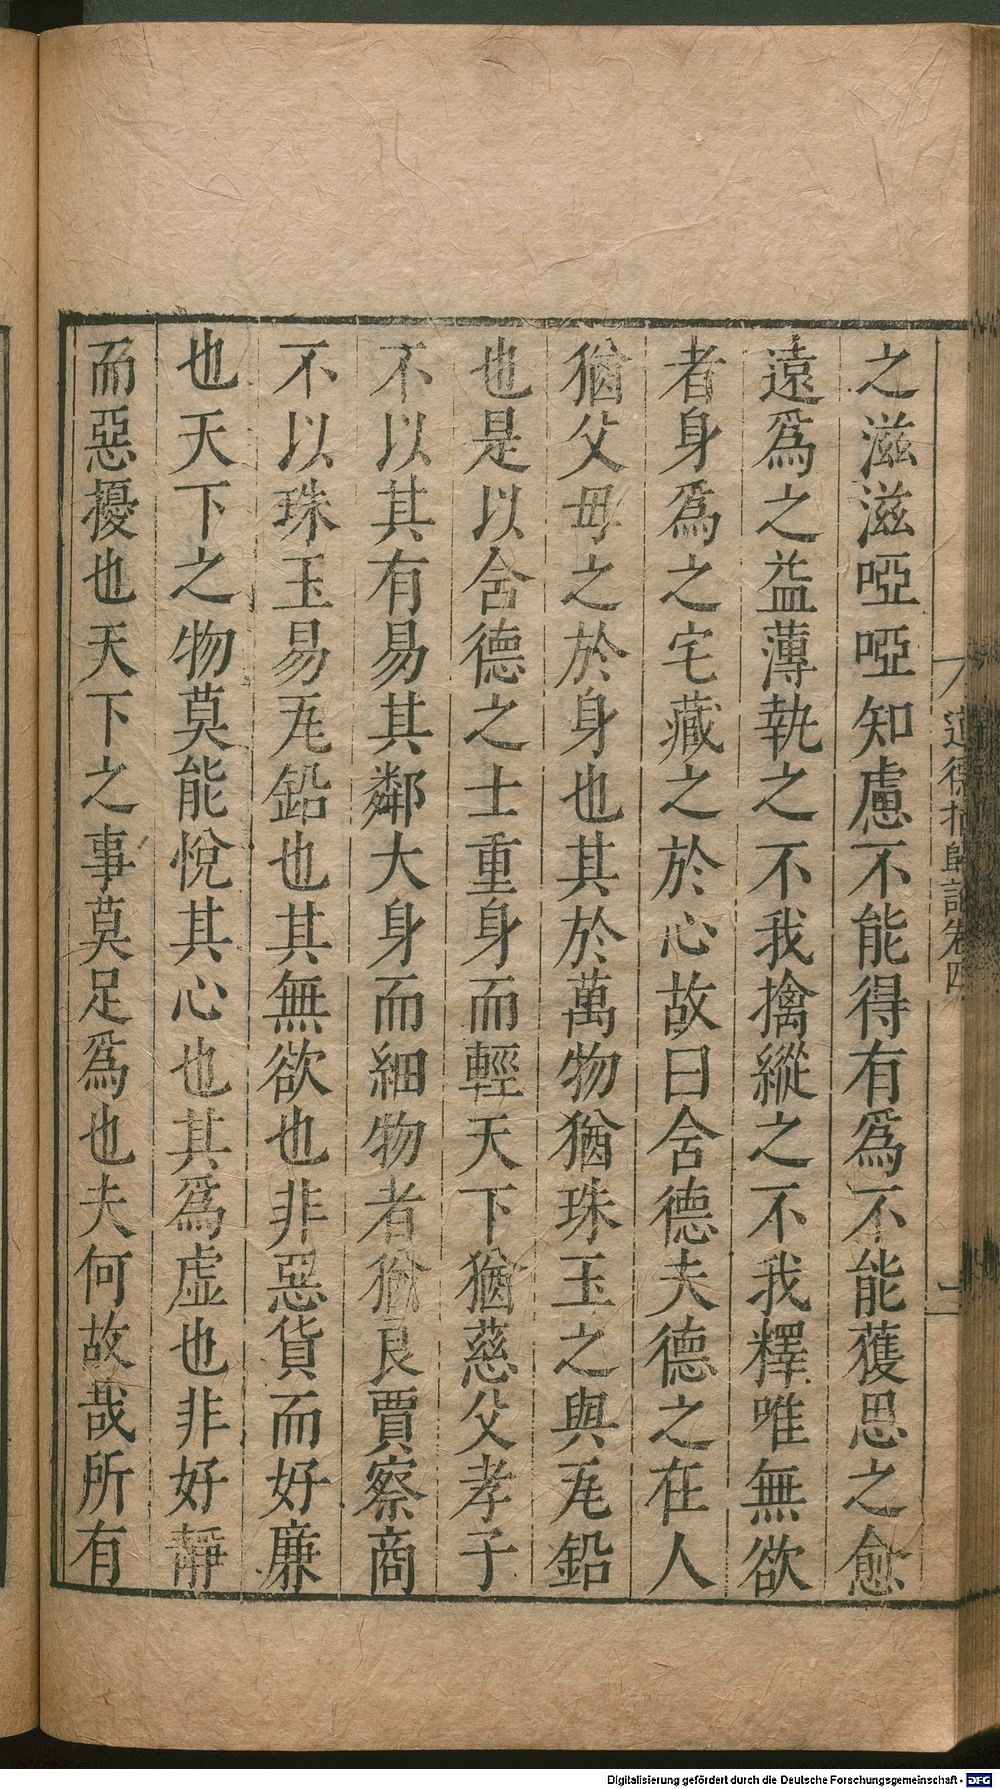 之滋滋啞啞知慮不能得有爲不能獲思之愈
遠爲之益薄執之不我擒縱之不我釋唯無欲
者身爲之宅藏之於心故曰含德夫德之在人
猶父母之於身也其於萬物猶珠玉之與瓦鉛
也是以含德之士重身而輕天下猶慈父孝子
不以其有易其鄰大身而細物者猶良賈察商
不以珠玉易瓦鉛也其無欲也非惡貨而好廉
也天下之物莫能悅其心也其爲虛也非好靜
而惡擾也天下之事莫足爲也夫何故哉所有
道德指歸論卷四
二
Digitalisierung gefördert durch die Deutsche Forschungsgemeinschaft - DFG